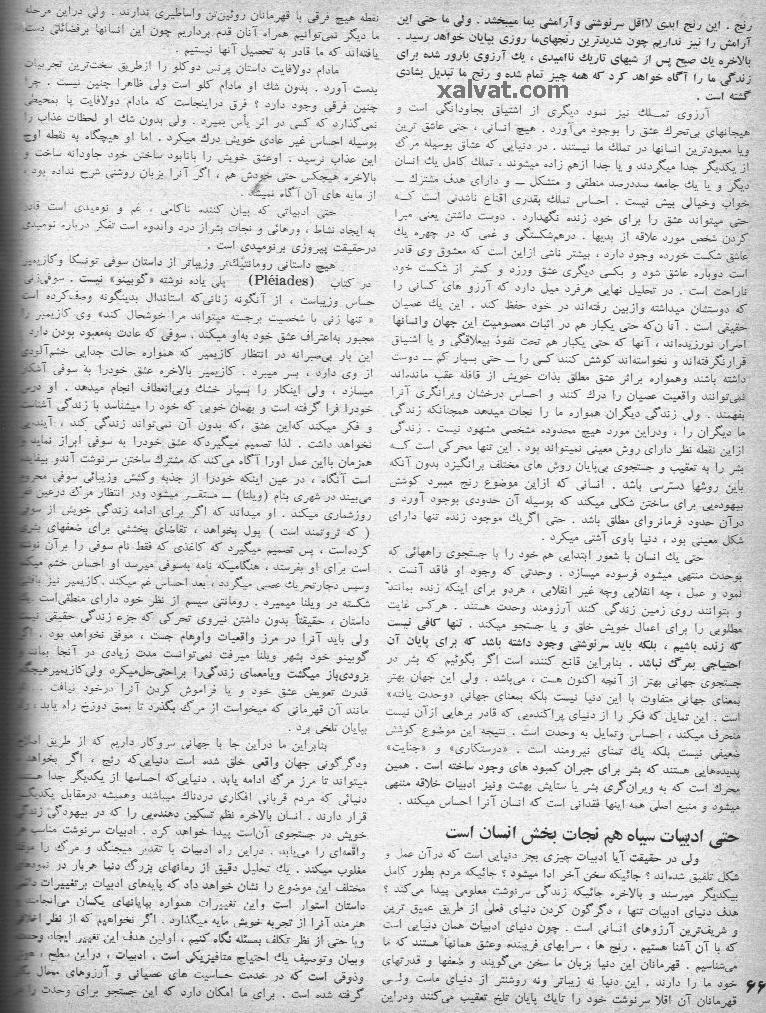 رنج . این رنج ابدی لااقل سرنوشتی وآرامشی بما میبخشد . ولی ما حتی این
آرامش را نیز نداریم چون شدیدترین رنجهای‌ما روزی بپایان خواهد رسید .
بالاخره یك صبح پس از شبهای تاریك ناامیدی ، یك آرزوی بارور شده برای
زندگی ما را آگاه خواهد کرد که همه چیز تمام شده و رنج ما تبدیل بشادی
گشته است .
xalvat.com
آرزوی تملك نیز نمود دیگری از اشتیاق بجاودانگی است و
هیجانهای بی‌تحرك عشق را بوجود می‌آورد . هیچ انسانی ، حتی عاشق ترین
ویا معبودترین انسانها در تملك ما نیستند . در دنیایی که عشاق بوسیله مرگ
از یکدیگر جدا میگردند و یا جدا ازهم زاده میشوند ، تملك کامل یك انسان
دیگر و یا یك جامعه صددرصد منطقی و متشکل – و دارای هدف مشترك –
خواب وخیالی بیش نیست . احساس تملك بقدری اقناع ناشدنی است کـه
حتی میتواند عشق را برای خود زنده نگهدارد . دوست داشتن یعنی مبرا
کردن شخص مورد علاقه از بدیها . درهم‌شکستگی و غمی که در چهره یك
عاشق شکست خورده وجود دارد ، بیشتر ناشی ازاین است که معشوق وی قادر
است دوباره عاشق شود و بکسی دیگری عشق ورزد و کمتر از شکست خود
ناراحت است . در تحلیل نهایی هرفرد میل دارد که آرزو های کسانی را
که دوستشان میداشته وازبین رفته‌اند در خود حفظ کند . این یك عصیان
حقیقی است . آنان‌که حتی یکبار هم در اثبات معصومیت این جهان وانسانها
اصرار نورزیده‌اند ، آنها که حتی یکبار هم تحت نفوذ بیعلاقگی و یا اشتیاق
قرارنگرفته‌اند و نخواسته‌اند کوشش کنند کسی را – حتی بسیار کم – دوست
داشته باشند وهمواره براثر عشق مطلق بذات خویش از قافله عقب مانده‌اند
نمی‌توانند واقعیت عصیان را درك کنند و احساس درخشان ویرانگری آنرا
بفهمند . ولی زندگی دیگران همواره ما را نجات میدهد همچنانکه زندگی
ما دیگران را ، ودراین مورد هیچ محدوده مشخصی مشهود نیست . زندگی
ازاین نقطه نظر دارای روش معینی نمیتواند بود . این تنها محرکی است کـه
بشر را به تعقیب و جستجوی بی‌پایان روش های مختلف برانگیزد بدون آنکه
باین روشها دسترسی باشد . انسانی که ازاین موضوع رنج میبرد کوشش
بیهوده‌یی برای ساختن شکلی میکند که بوسیله آن حدودی بوجود آورد و
درآن حدود فرمانروای مطلق باشد . حتی اگریك موجود زنده تنها دارای
شکل معینی بود ، دنیا باوی آشتی میکرد .
حتی یك انسان با شعور ابتدایی هم خود را با جستجوی راههائی که
بوحدت منتهی میشود فرسوده میسازد . وحدتی که وجود او فاقد آنست .
نمود و عمل ، چه انقلابی وچه غیر انقلابی ، هردو برای اینکه زنده بمانند
و بتوانند روی زمین زندگی کنند آرزومند وحدت هستند . هرکس غایت
مطلوبی را برای اعمال خویش خلق و یا جستجو میکند . تنها کافی نیست
که زنده باشیم ، بلکه باید سرنوشتی وجود داشته باشد که برای پایان آن
احتیاجی بمرگ نباشد . بنابراین قانع کننده است اگر بگوئیم که بشر در
جستجوی جهانی بهتر از آنچه اکنون هست ، می‌باشد . ولی این جهان بهتر
بمعنای جهانی متفاوت با این دنیا نیست بلکه بمعنای جهانی «وحدت یافته»
است . این تمایل که فکر را از دنیای پراکنده‌یی که قادر برهایی ازآن نیست
منحرف میکند ، احساس وتمایل به وحدت است . نتیجه این موضوع کوشش
ضعیفی نیست بلکه یك تمنای نیرومند است . «درستکاری» و «جنایت»
پدیده‌هایی هستند که بشر برای جبران کمبود های وجود ساخته است . همین
محرك است که به ویران‌گری بشر یا ستایش بهشت ونیز ادبیات خلاقه منتهی
میشود و منبع اصلی همه اینها فقدانی است که انسان آنرا احساس میکند .
حتی ادبیات سیاه هم نجات بخش انسان است
ولی در حقیقت آیا ادبیات چیزی بجز دنیایی است که درآن عمل و
شکل تلفیق شده‌اند ؟ جائیکه سخن آخر ادا میشود ؟ جائیکه مردم بطور کامل
بیکدیگر میرسند و بالاخره جائیکه زندگی سرنوشت معلومی پیدا می‌کند ؟
هدف دنیای ادبیات تنها ، دگرگون کردن دنیای فعلی از طریق عمیق ترین
و شریف‌ترین آرزوهای انسانی است . چون دنیای ادبیات همان دنیایی است
که با آن آشنا هستیم . رنج ها ، سرابهای فریبنده وعشق همانها هستند که ما
می‌شناسیم . قهرمانان این دنیا بزبان ما سخن می‌گویند و ضعفها و قدرتهای
خود ما را دارند . این دنیا نه زیباتر ونه روشنتر از دنیای ماست ولــی
قهرمانان آن اقلا سرنوشت خود را تاپك پایان تلخ تعقیب می‌کنند ودراین
۶۶
نقطه هیچ فرقی با قهرمانان روئین‌تن واساطیری ندارند . ولی دراین مرحله
ما دیگر نمی‌توانیم همراه آنان قدم برداریم چون این انسانها برفضائلی دست
یافته‌اند که ما قادر به تحصیل آنها نیستیم .
مادام دولافایت داستان پرنس دوکلو را ازطریق سخت‌ترین تجربیات
بدست آورد . بدون شك او مادام کلو است ولی ظاهرا چنین نیست . چرا
چنین فرقی وجود دارد ؟ فرق دراینجاست که مادام دولافایت پا بمحیطی
نمی‌گذارد که کسی در اثر یأس بمیرد . ولی بدون شك او لحظات عذاب را
بوسیله احساس غیر عادی خویش درك میکرد . اما او هیچگاه به نقطه اوج
این عذاب نرسید . اوعشق خویش را بانابود ساختن خود جاودانه ساخت و
بالاخره هیچکس حتی خودش هم ، اگر آنرا بزبان روشنی شرح نداده بود ،
از مایه های آن آگاه نمیشد .
حتی ادبیاتی که بیان کننده ناکامی ، غم و نومیدی است قادر
به ایجاد نشاط ، ورهائی و نجات بشراز درد واندوه است تفکر درباره نومیدی
درحقیقت پیروزی برنومیدی است .
هیچ داستانی رومانتیك‌تر وزیباتر از داستان سوفی تونسکا وکازیمیر
در کتاب (Pléiades) پلی یاده نوشته «گوبینو» نیست . سوفی‌زنی
حساس وزیباست ، از آنگونه زنانی‌که استاندال بدینگونه وصف‌کرده است
« تنها زنی با شخصیت برجسته میتواند مرا خوشحال کند» وی کازیمیر را
مجبور به‌اعتراف عشق خود به‌او میکند . سوفی که عادت به‌معبود بودن دارد
این بار بی‌صبرانه در انتظار کازیمیر که همواره حالت جدایی خشم‌آلودی
از وی دارد ، بسر میبرد . کازیمیر بالاخره عشق خودرا به سوفی آشکار
میسازد ، ولی اینکار را بسیار خشك وبی‌انعطاف انجام میدهد . او درس
خودرا فرا گرفته است و بهمان خوبی که خود را میشناسد با زندگی آشناست
و فکر میکند که‌این عشق ،که بدون آن نمی‌تواند زندگی کند ، آینده‌یی
نخواهد داشت . لذا تصمیم میگیردکه عشق خودرا به سوفی ابراز نماید و
همزمان بااین عمل اورا آگاه می‌کند که مشترك ساختن سرنوشت آندو بیفایده
است آنگاه ، در عین اینکه خودرا از جذبه وکشش وزیبائی سوفی محروم
می‌بیند در شهری بنام (ویلنا) – مستقـر میشود ودر انتظار مرگ درعین فقر
روزشماری میکند . او میداند که اگر برای ادامه زندگی خویش از سوفی
( که ثروتمند است ) پول بخواهد ، تقاضای بخششی برای ضعفهای بشری
کرده‌است ، پس تصمیم میگیرد که کاغذی که فقط نام سوفی را برآن نوشته
است برای او بفرستد ، هنگامیکه نامه به‌سوفی میرسد او احساس خشم میکند
وسپس دچارتحریك عصبی میگردد ، بعد احساس غم میکند .کازیمیر نیز باقلبی
شکسته در ویلنا میمیرد . رومانتی سیسم از نظر خود دارای منطقی‌است . یك
داستان ، حقیقتاً بدون داشتن نیروی تحرکی که جزء زندگی حقیقی نیست
ولی باید آنرا در مرز واقعیات واوهام جست ، موفق نخواهد بود . اگر
گوبینو خود بشهر ویلنا میرفت نمی‌توانست مدت زیادی در آنجا بماند و
بزودی‌باز میگشت ویامعمای زندگی‌را براحتی‌حل‌میکرد ولی‌کازیمیرهیچگاه
قدرت تعویض عشق خود و یا فراموش کردن آنرا درخود نیافت ...
مانند آن قهرمانی که میخواست از مرگ بگذرد تا بعمق دوزخ راه یابد ، راه
بپایان تلخی برد .
بنابراین ما دراین جا با جهانی سروکار داریم که از طریق اصلاح
ودگرگونی جهان واقعی خلق شده است دنیایی‌که رنج ، اگر بخواهد
میتواند تا مرز مرگ ادامه یابد . دنیایی‌که احساسها از یکدیگر جدا هستند
دنیائی که مردم قربانی افکاری دردناك میباشند وهمیشه درمقابل یکدیگر
قرار دارند . انسان بالاخره نظم تسکین دهنده‌یی را که در بیهودگی زندگی
خویش در جستجوی آن‌است پیدا خواهد کرد . ادبیات سرنوشت مناسب هر
واقعه‌ای را می‌یابد . دراین راه ادبیات با تقدیر میجنگد و مرگ را موقتاً
مغلوب میکند . یك تحلیل دقیق از رمانهای بزرگ دنیا هربار در نمودهای
مختلف این موضوع را نشان خواهد داد که پایه‌های ادبیات برتغییرات دائمی
داستان استوار است واین تغییرات همواره بپایانهای یکسان می‌انجامند و
هنرمند آنرا از تجربه خویش مایه میگذارد . اگر نخواهیم که از نظر اخلاقی
ویا حتی از نظر تکلف بمسئله نگاه کنیم ، اولین هدف این تغییر ایجاد وحدت
وبیان وتوصیف یك احتیاج متافیزیکی است . ادبیات ، دراین سطح ، هوش
وذوقی است که در خدمت حساسیت های عصیانی و آرزوهای محال بکار
گرفته شده است . برای ما امکان دارد که این جستجو برای وحدت را در